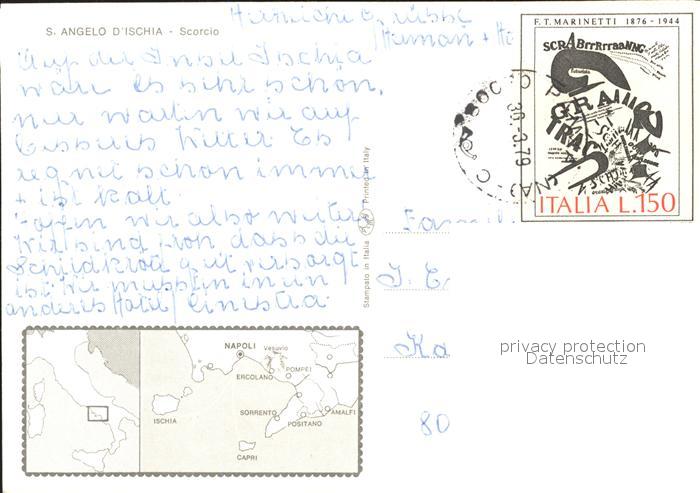 S. ANGELO D'ISCHIA - Scorcio
Herzliche Grüsse
Herman +
Auf der Insel Ischia
wäre es sehr schön,
nur warten wir auf
besseres Wetter. Es
regnet schon immer
+ ist kalt.
Hoffen wir also weiter.
Wir sind froh dass die
Schildkröte gut versorgt
ist. Wir mussten in ein
anderes Hotel Ginestra
F.T. MARINETTI 1876 - 1944
SCRABrrRrraaNNG
GRAN
TRAC
ITALIA L.150
30-3.79
Printed in Italy
Stampato in Italia
Famili
Ka
80
privacy protection
Datenschutz
NAPOLI
Vesuvio
ERCOLANO
POMPEI
ISCHIA
SORRENTO
AMALFI
POSITANO
CAPRI